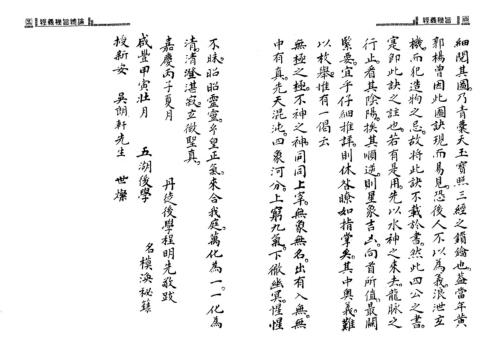 經義機旨
細閱其圖乃青囊天玉寶照三經之鎖鑰也蓋當年黃
郭楊曾因此圖訣現而易見恐後人不以為義浪泄玄
機而犯造物之忌故將此訣不載於書然此四公之書
寔即此訣之註也若有是用先以水神之來去龍脈之
行止看其陰陽挨其順逆則星象吉凶向首所值最關
緊要宜乎仔細推詳則休咎瞭如指掌矣其中奧義難
以枚舉惟有一偈云
無極之極不神之神同同上宰無象無名出有入無無
中有真先天混沌四象河分上窮九氣下徹幽冥惺惺
經義機旨
不昧昭昭靈靈至皇正氣來合我庭萬化為一一化為
清清澄湛寂立徹聖真
嘉慶丙子夏月 丹徒後學程明先敬跋
咸豐甲寅壯月 五湖後學 名模渙秘錄
授新安 吳朗軒先生 世燦